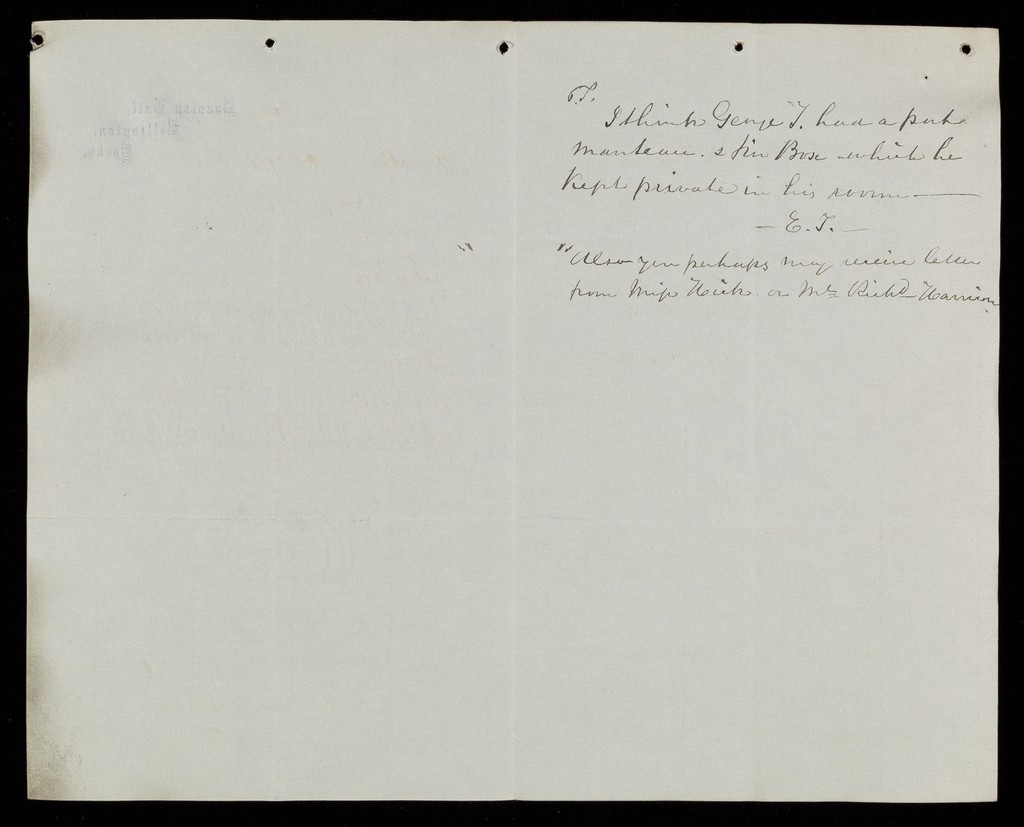 I think George T. had a port
manteau. & tin Box which he
Kept private in his room —
— E. T. —
"Also you perhaps may receive letter
from Miss Hick or Mrs Richd Harrison